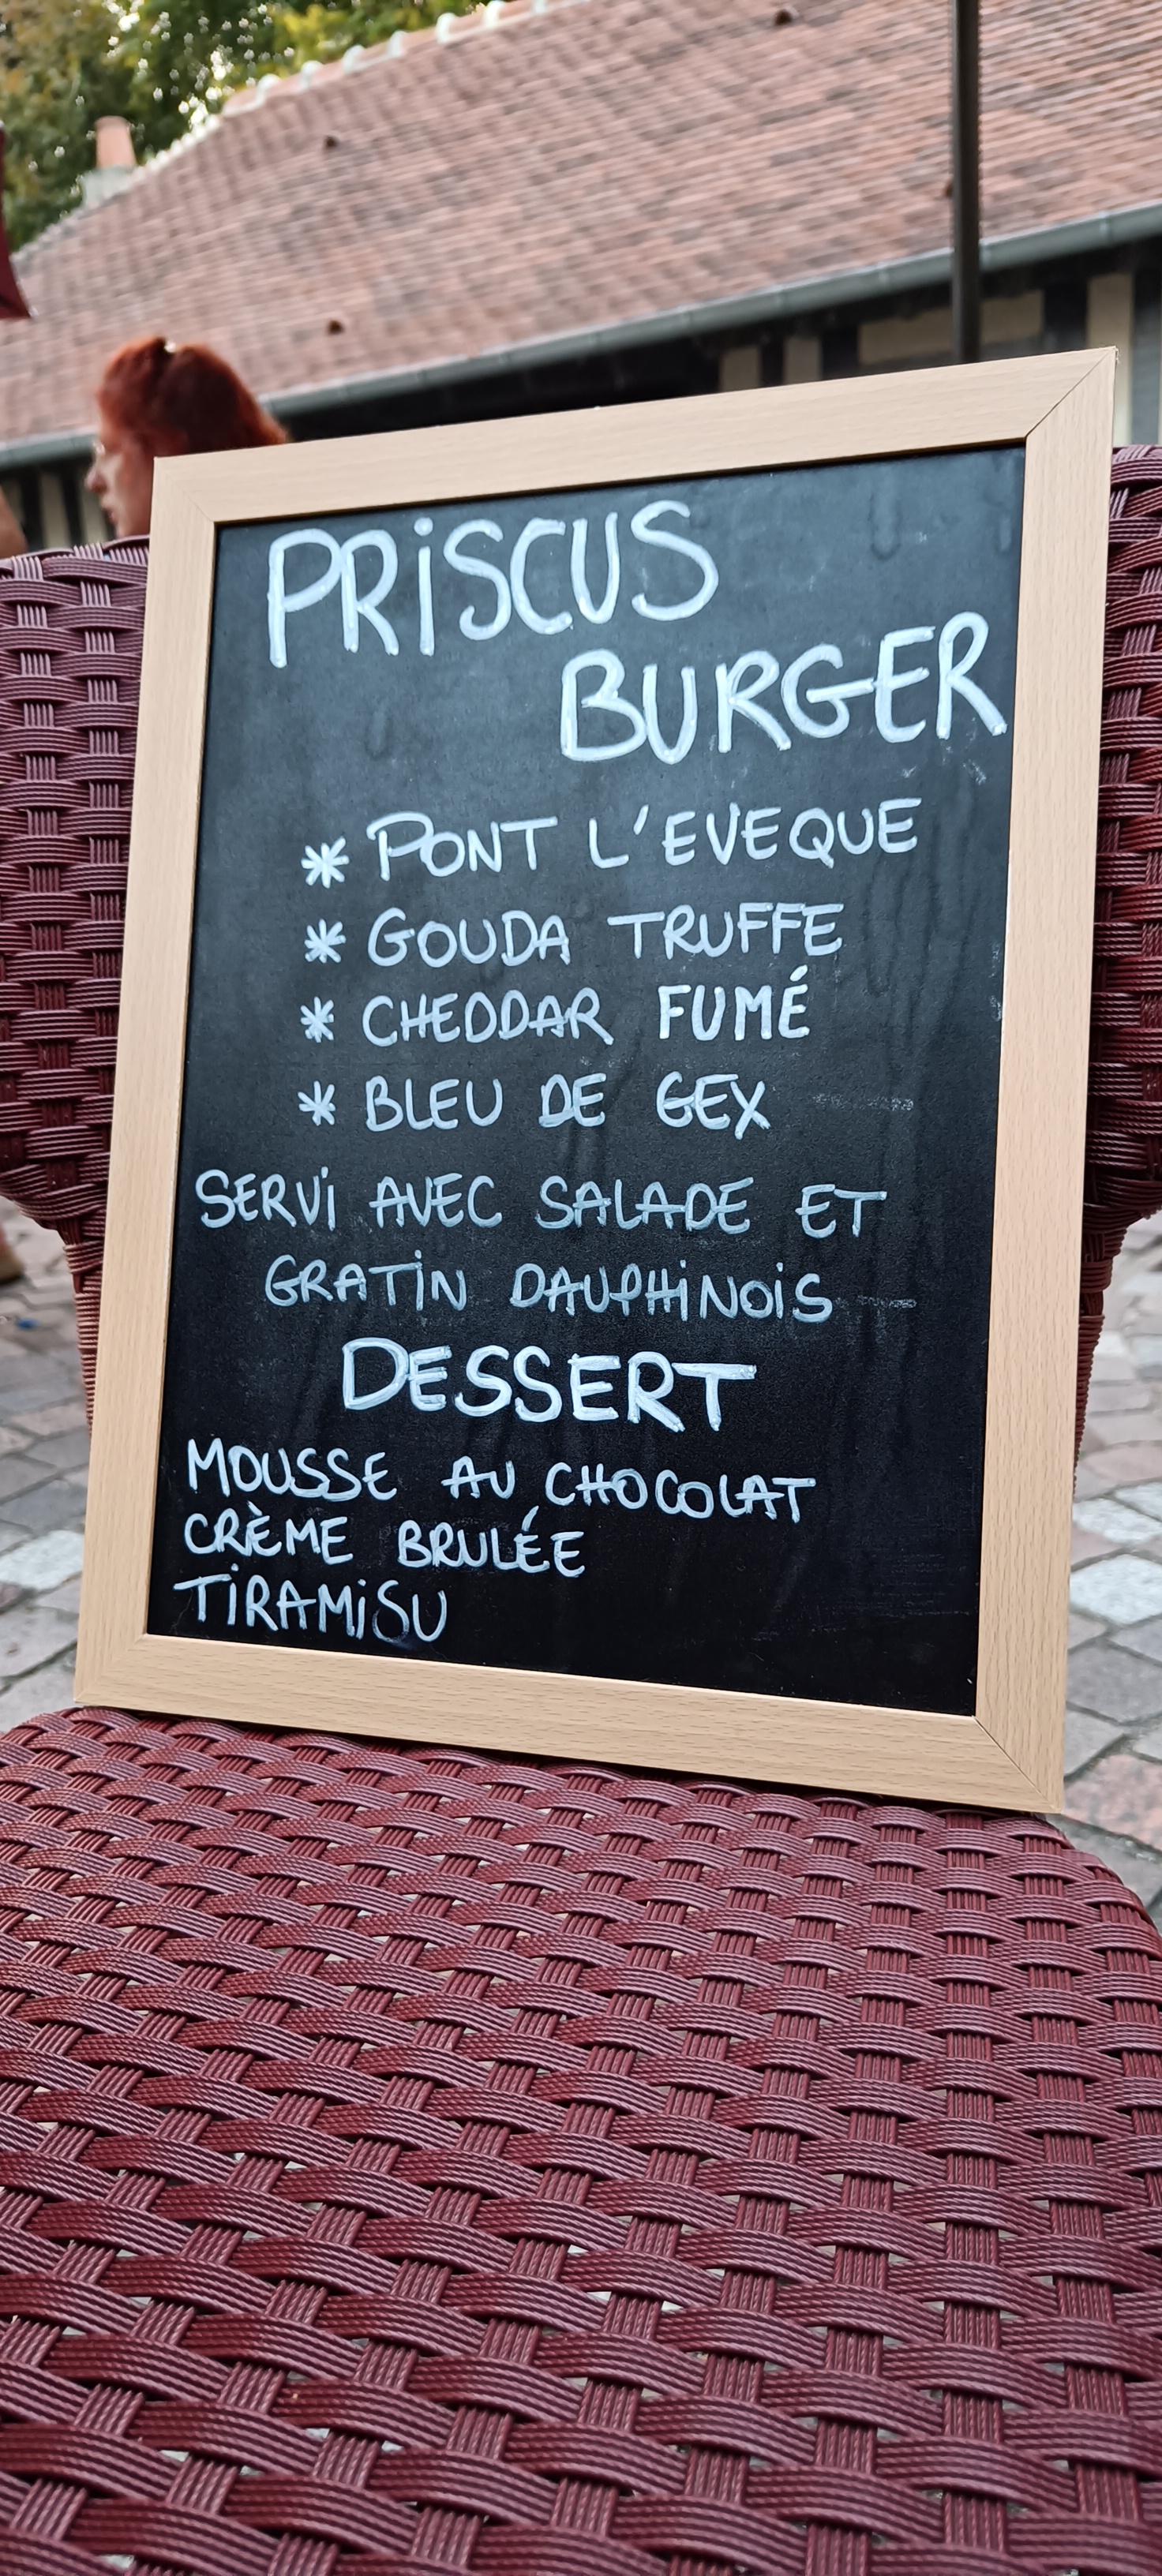 PRISCUS
BURGER
* PONT L'EVEQUE
* GOUDA TRUFFE
* CHEDDAR FUMÉ
* BLEU DE GEX
SERVI AVEC SALADE ET
GRATIN DAUPHINOIS
DESSERT
MOUSSE AU CHOCOLAT
CRÈME BRULÉE
TIRAMISU